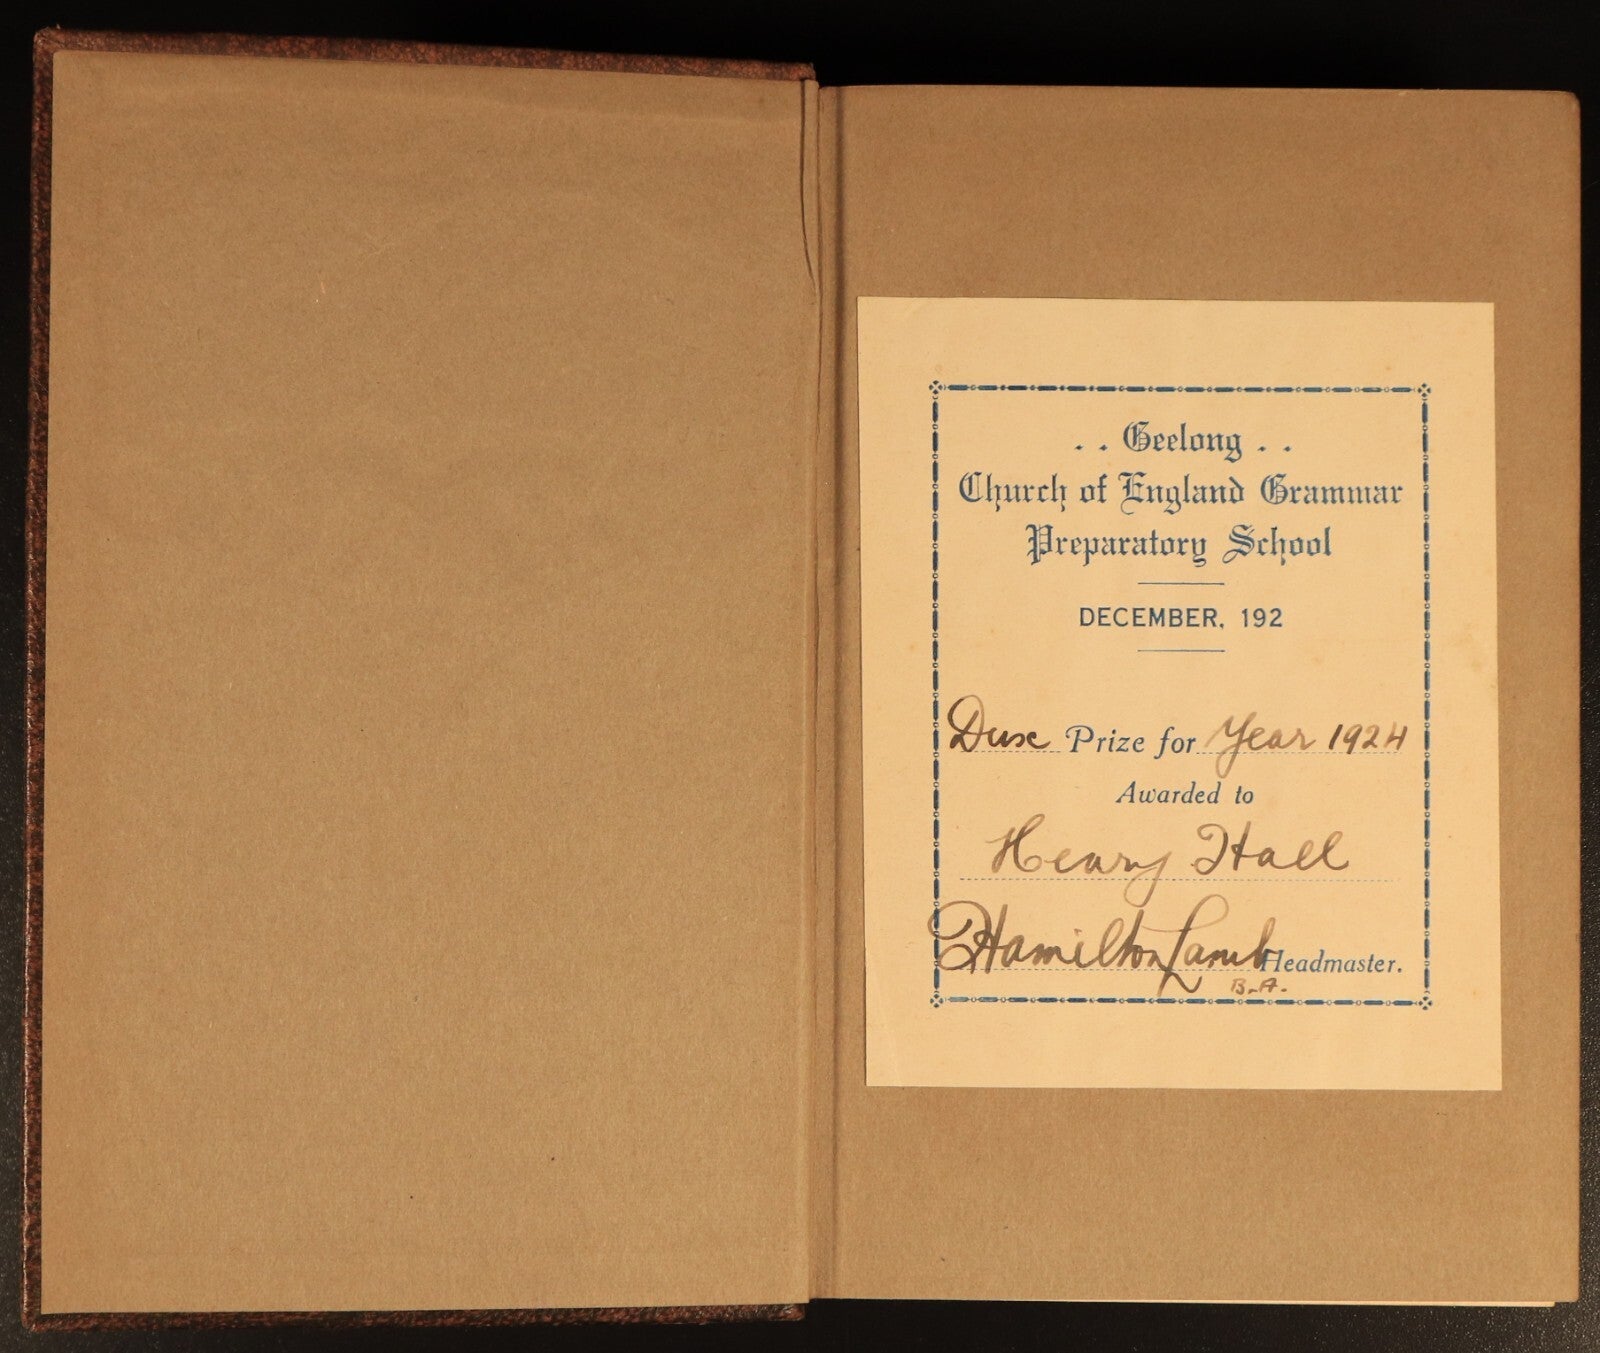 . . Geelong . .
Church of England Grammar
Preparatory School
DECEMBER, 192
Dux Prize for Year 1924
Awarded to
Henry Hall
Hamilton Lamb Headmaster.
B.A.